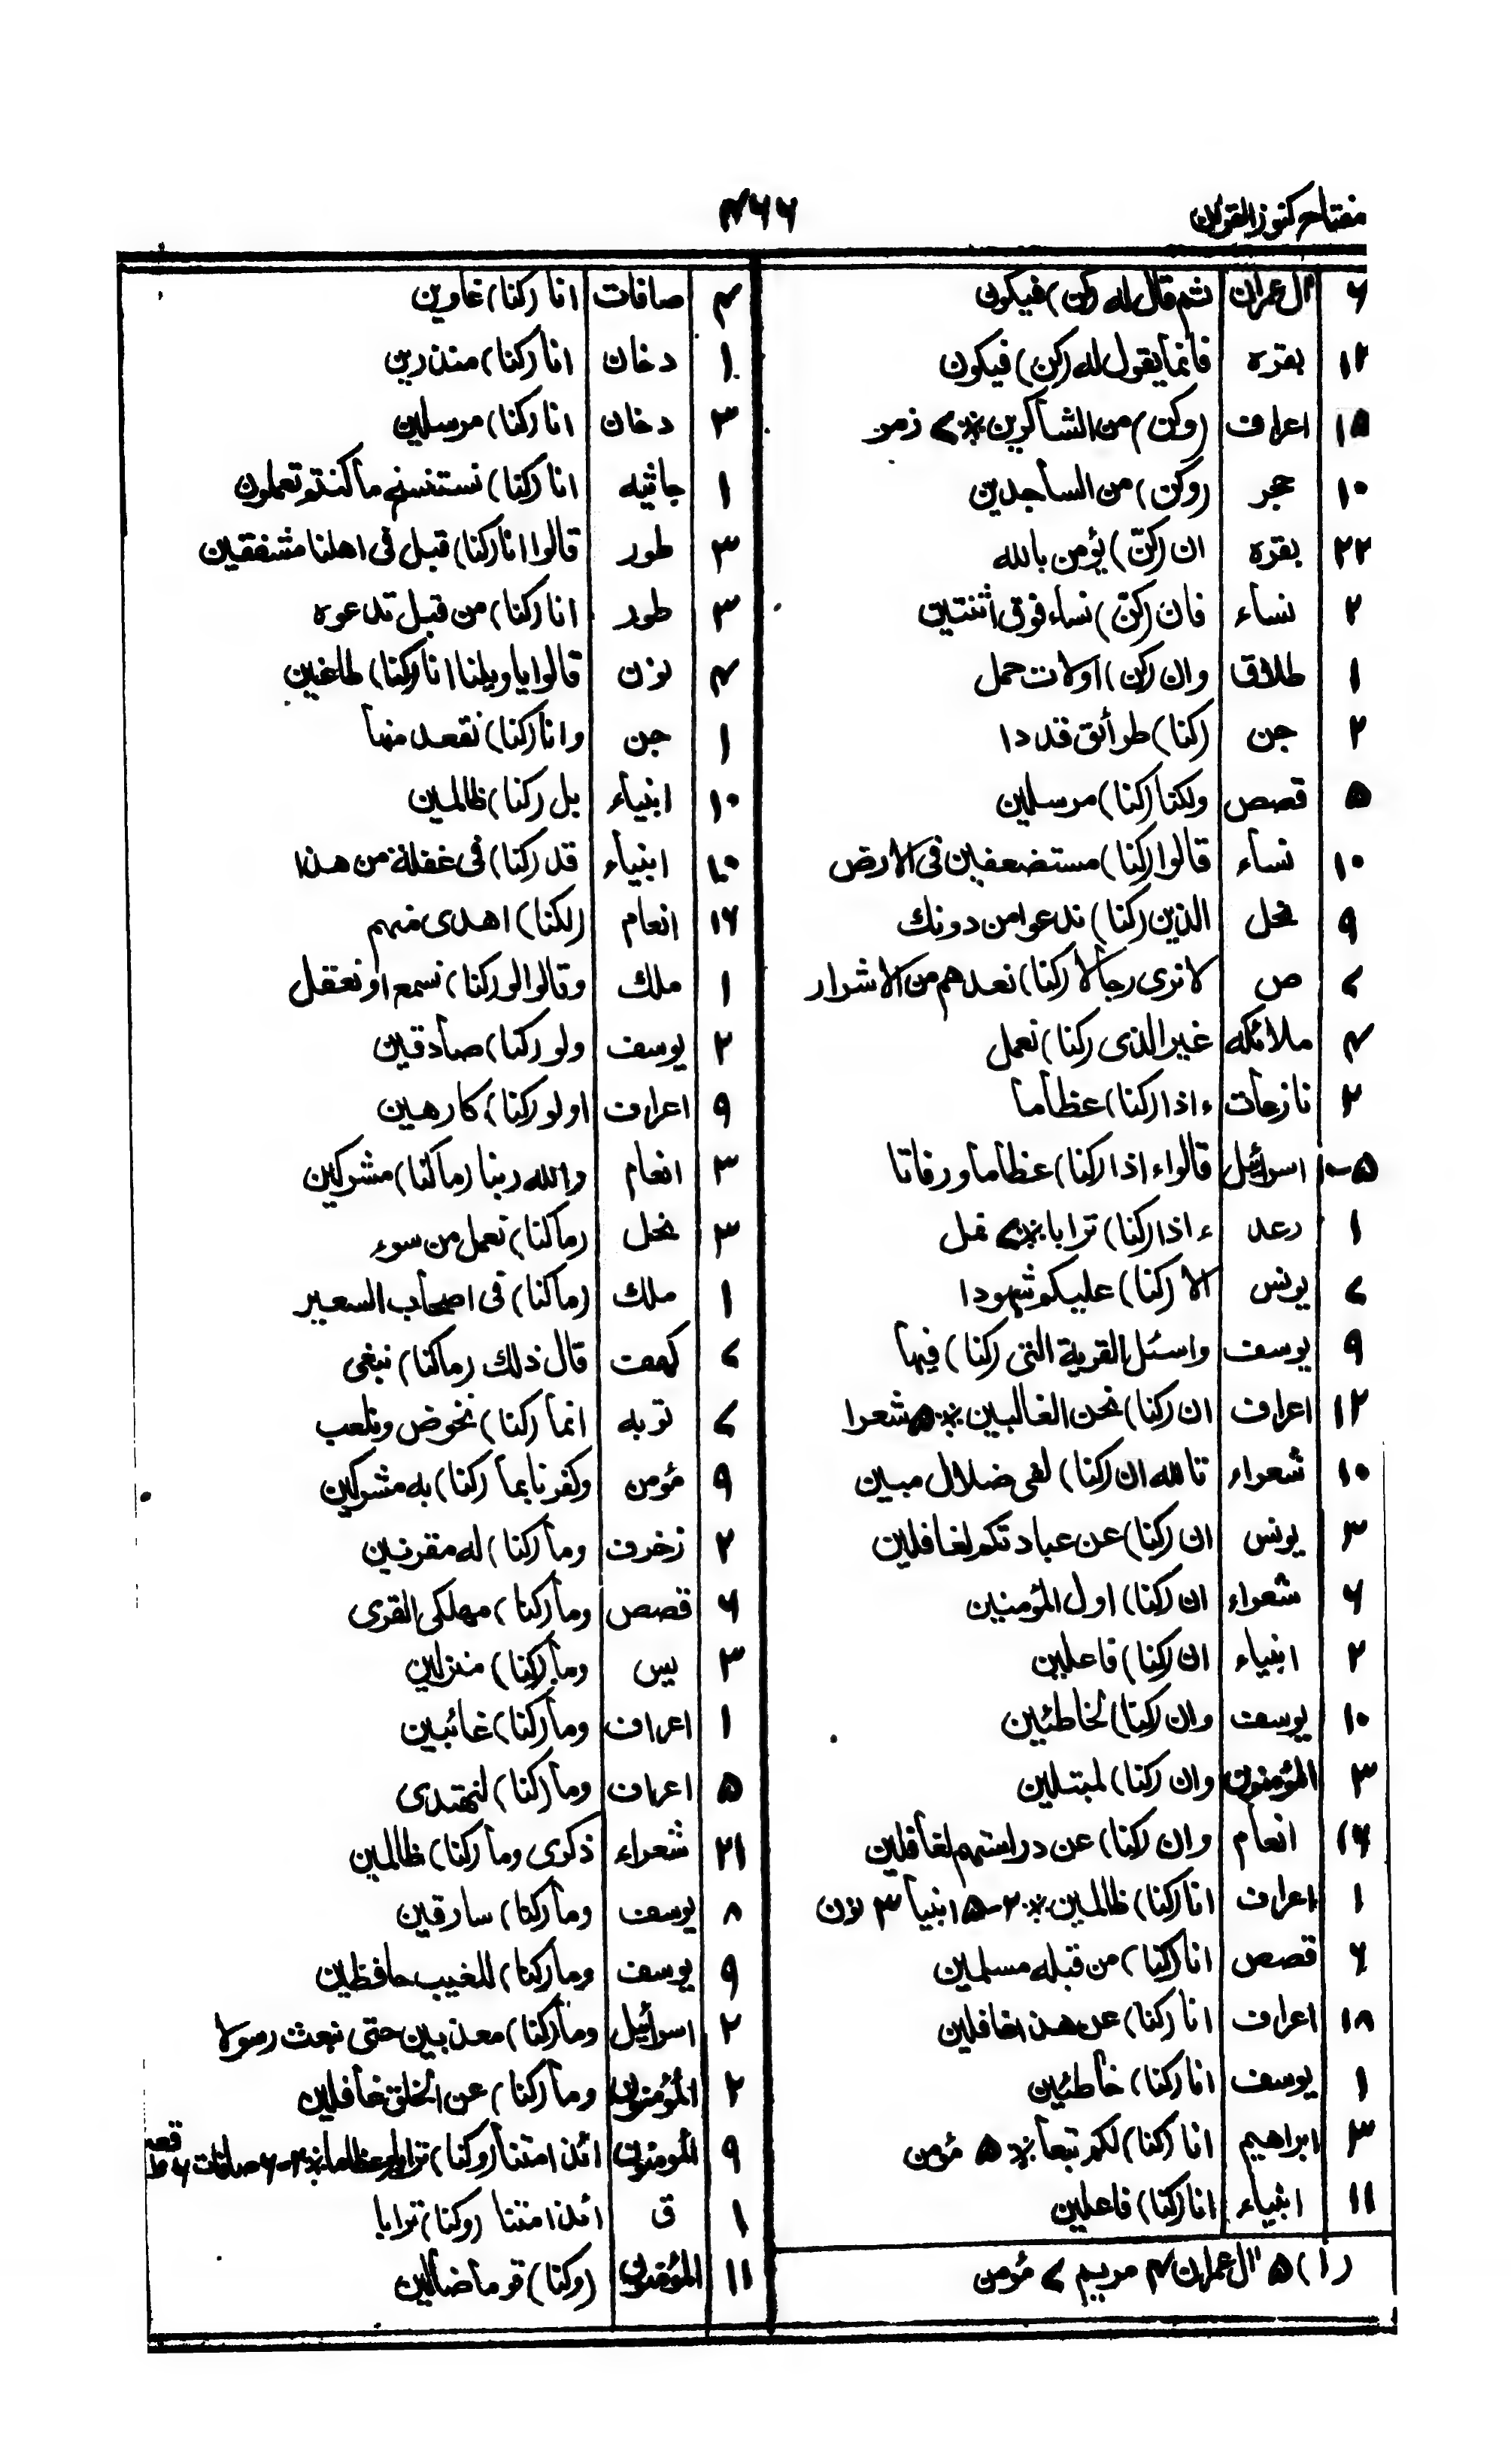 مفتاح كنوز القرآن
۴۶۶
۶ آل عمران ثم قال له (كن) فيكون
۱۲ بقره فانما يقول له (كن) فيكون
۱۵ اعراف (وكن) من الشاكرين * ۷ زمر
۱۰ حجر (وكن) من الساجدين
۲۲ بقره ان (كنّ) يؤمن بالله
۲ نساء فان (كنّ) نساء فوق اثنتين
۱ طلاق وان (كن) اولات حمل
۲ جن (كنا) طرائق قددا
۵ قصص ولكنا (كنا) مرسلين
۱۰ نساء قالوا (كنا) مستضعفين فى الارض
۹ نحل الذين (كنا) ندعوا من دونك
۷ ص لا نرى رجالا (كنا) نعدهم من الاشرار
۴ ملائكه غير الذى (كنا) نعمل
۲ نازعات ء اذا (كنا) عظاما
۵-۱۰ اسرائيل قالواء اذا (كنا) عظاما ورفاتا
۱ رعد ء اذا (كنا) ترابا * ۷ نمل
۷ يونس الا (كنا) عليكم شهودا
۹ يوسف واسئل القرية التى (كنا) فيها
۱۲ اعراف ان (كنا) نحن الغالبين * ۵ شعرا
۱۰ شعراء تالله ان (كنا) لفى ضلال مبين
۳ يونس ان (كنا) عن عبادتكم لغافلين
۶ شعراء ان (كنا) اول المؤمنين
۲ انبياء ان (كنا) فاعلين
۱۰ يوسف وان (كنا) لخاطئين
۳ المؤمنون وان (كنا) لمبتلين
۱۶ انعام وان (كنا) عن دراستهم لغافلين
۱ اعراف انا (كنا) ظالمين * ۲-۵ انبيا ۳ نون
۶ قصص انا (كنا) من قبله مسلمين
۱۸ اعراف انا (كنا) عن هذا غافلين
۱ يوسف انا (كنا) خاطئين
۳ ابراهيم انا (كنا) لكم تبعا * ۵ مؤمن
۱۱ انبياء انا (كنا) فاعلين
(۱) ۵ آل عمران ۴ مريم ۷ مؤمن
۴ صافات انا (كنا) غاوين
۱ دخان انا (كنا) منذرين
۳ دخان انا (كنا) مرسلين
۱ جاثيه انا (كنا) نستنسخ ما كنتم تعملون
۳ طور قالوا انا (كنا) قبل فى اهلنا مشفقين
۳ طور انا (كنا) من قبل ندعوه
۴ نون قالوا يا ويلنا انا (كنا) طاغين
۱ جن وانا (كنا) نقعد منها
۱۰ انبياء بل (كنا) ظالمين
۱۰ انبياء قد (كنا) فى غفلة من هذا
۱۶ انعام (لكنا) اهدى منهم
۱ ملك وقالوا لو (كنا) نسمع او نعقل
۲ يوسف ولو (كنا) صادقين
۹ اعراف اولو (كنا) كارهين
۳ انعام والله ربنا (ما كنا) مشركين
۳ نحل (ما كنا) نعمل من سوء
۱ ملك (ما كنا) فى اصحاب السعير
۷ كهف قال ذلك (ما كنا) نبغى
۷ توبه انما (كنا) نخوض ونلعب
۹ مؤمن وكفرنا بما (كنا) به مشركين
۲ زخرف وما (كنا) له مقرنين
۶ قصص وما (كنا) مهلكى القرى
۳ يس وما (كنا) منزلين
۱ اعراف وما (كنا) غائبين
۵ اعراف وما (كنا) لنهتدى
۲۱ شعراء ذكرى وما (كنا) ظالمين
۸ يوسف وما (كنا) سارقين
۹ يوسف وما (كنا) للغيب حافظين
۲ اسرائيل وما (كنا) معذبين حتى نبعث رسولا
۲ المؤمنون وما (كنا) عن الخلق غافلين
۹ المؤمنون ائذا متنا (وكنا) ترابا وعظاما * ۲-۶ صافات
۱ ق ائذا متنا (وكنا) ترابا
۱۱ المؤمنون (وكنا) قوما ضالين